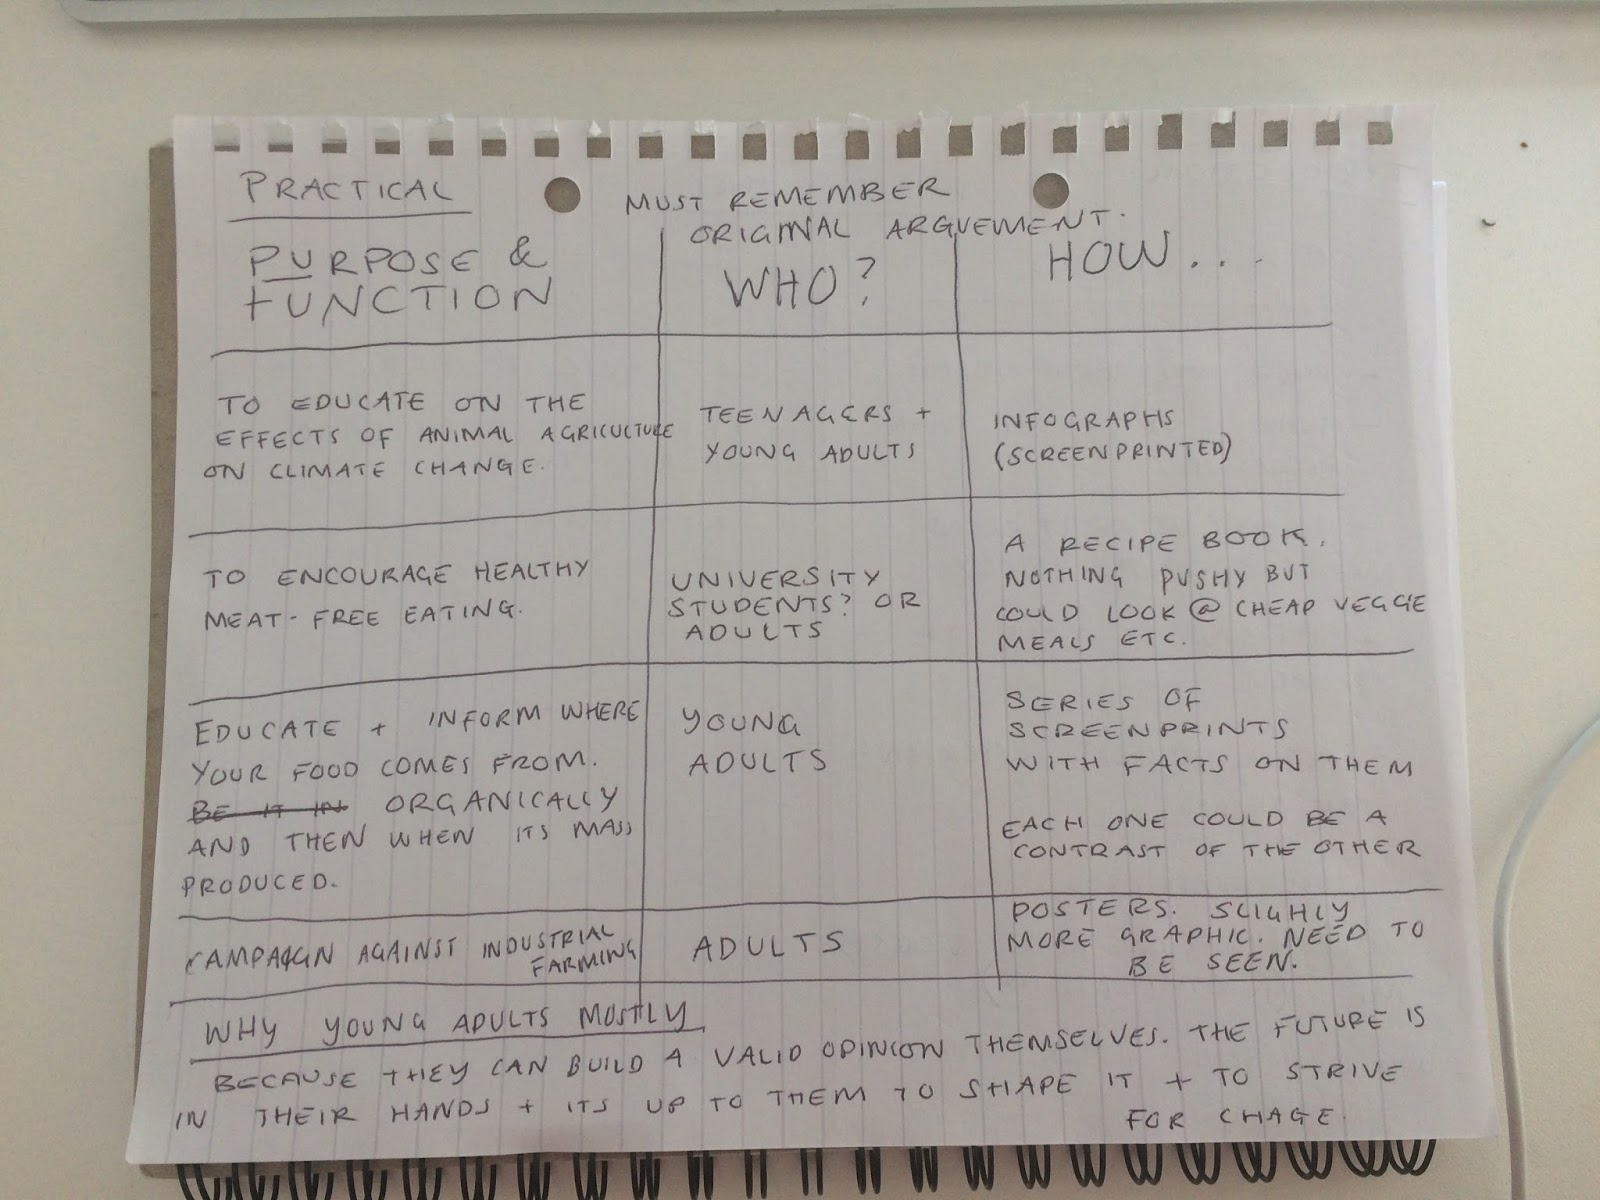 PRACTICAL
MUST REMEMBER
ORIGINAL ARGUEMENT.
PURPOSE &
FUNCTION
WHO?
HOW...
TO EDUCATE ON THE
EFFECTS OF ANIMAL AGRICULTURE
ON CLIMATE CHANGE.
TEENAGERS +
YOUNG ADULTS
INFOGRAPHS
(SCREENPRINTED)
TO ENCOURAGE HEALTHY
MEAT-FREE EATING.
UNIVERSITY
STUDENTS? OR
ADULTS
A RECIPE BOOK.
NOTHING PUSHY BUT
COULD LOOK @ CHEAP VEGGIE
MEALS ETC.
EDUCATE + INFORM WHERE
YOUR FOOD COMES FROM.
BE IT IN ORGANICALLY
AND THEN WHEN ITS MASS
PRODUCED.
YOUNG
ADULTS
SERIES OF
SCREENPRINTS
WITH FACTS ON THEM
EACH ONE COULD BE A
CONTRAST OF THE OTHER
CAMPAIGN AGAINST INDUSTRIAL
FARMING
ADULTS
POSTERS. SLIGHLY
MORE GRAPHIC. NEED TO
BE SEEN.
WHY YOUNG ADULTS MOSTLY
BECAUSE THEY CAN BUILD A VALID OPINION THEMSELVES. THE FUTURE IS
IN THEIR HANDS + ITS UP TO THEM TO SHAPE IT + TO STRIVE
FOR CHAGE.